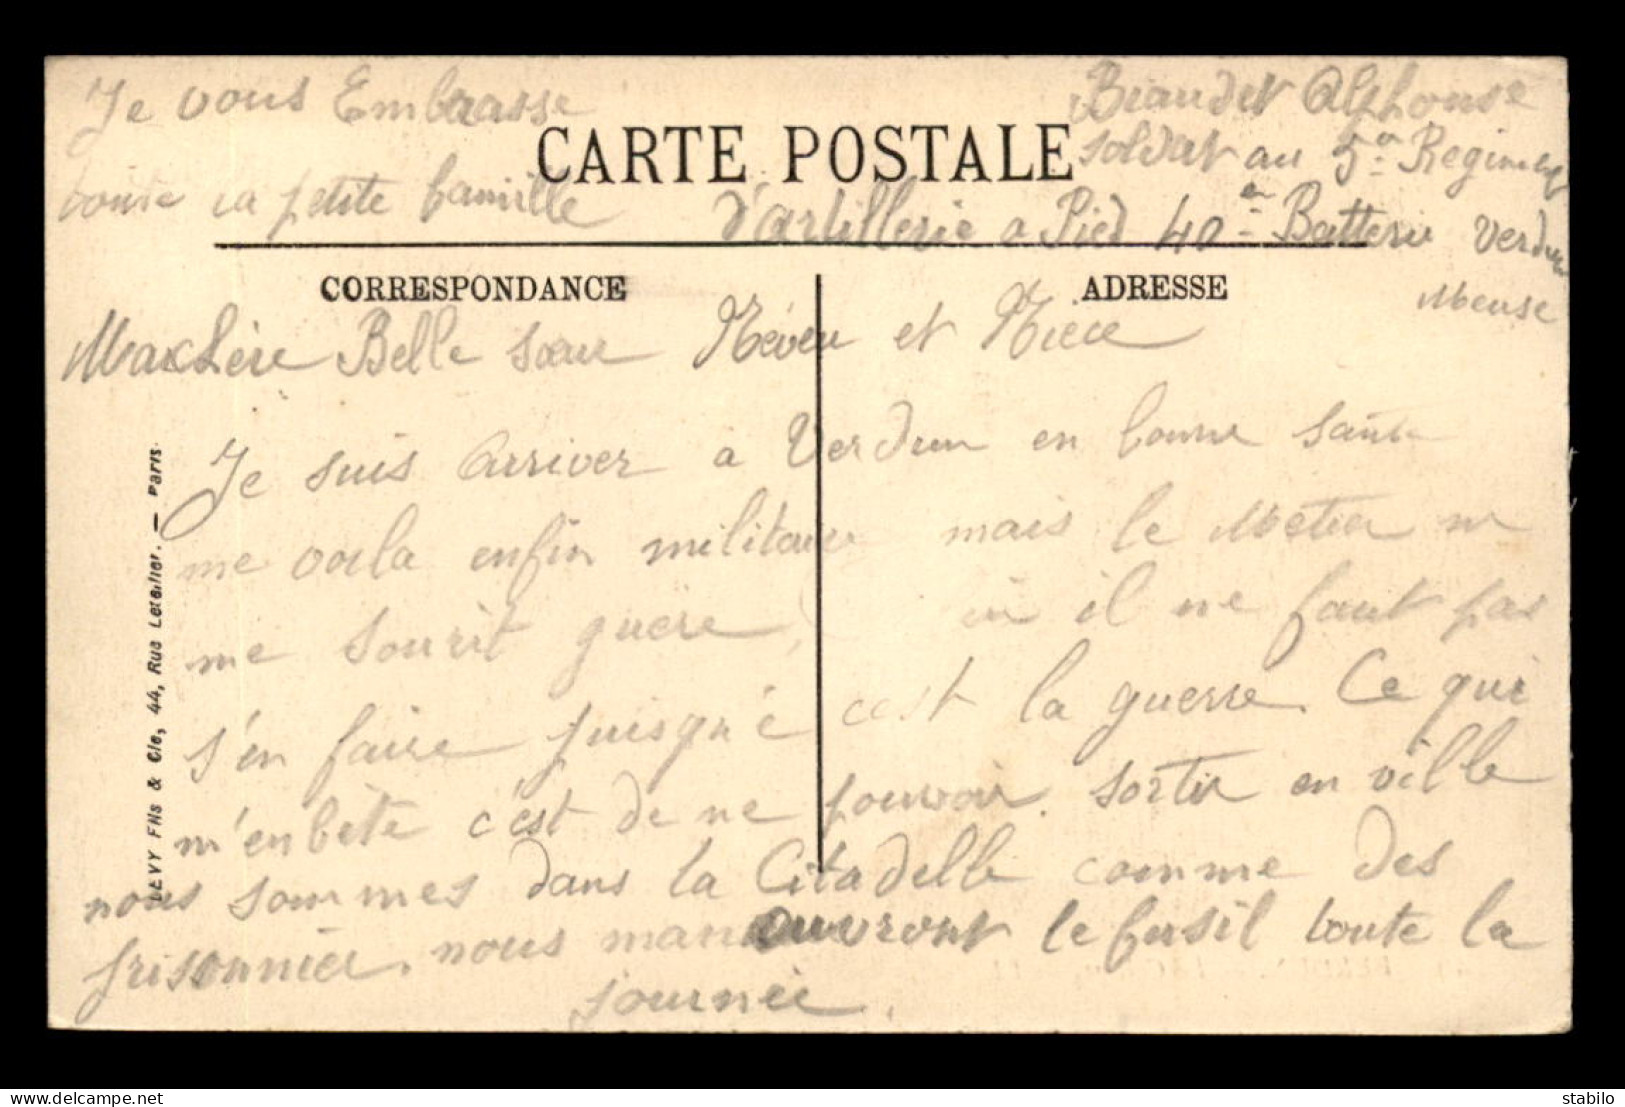 Je vous Embrasse
toute la petite famille
Biaudet Alphonse
soldat au 5e Regiment
d'artillerie a Pied 40em Batterie Verdun
Meuse
CARTE POSTALE
CORRESPONDANCE
ADRESSE
Belle sœur Néveu et Niéce
Je suis arriver a Verdun en bonne santé
me voila enfin militaire mais le Métier
me sourit guere, il ne faut pas
s'en faire puisqu'é c'est la guerre. Ce qui
m'enbéte c'est de ne pouvoir sortir en ville
nous sommes dans la Citadelle comme des
prisonnier. nous manouvront le fusil toute la
journée.
LEVY Fils & Cie, 44, Rue Letellier. — Paris
delcampe.net
stabilo